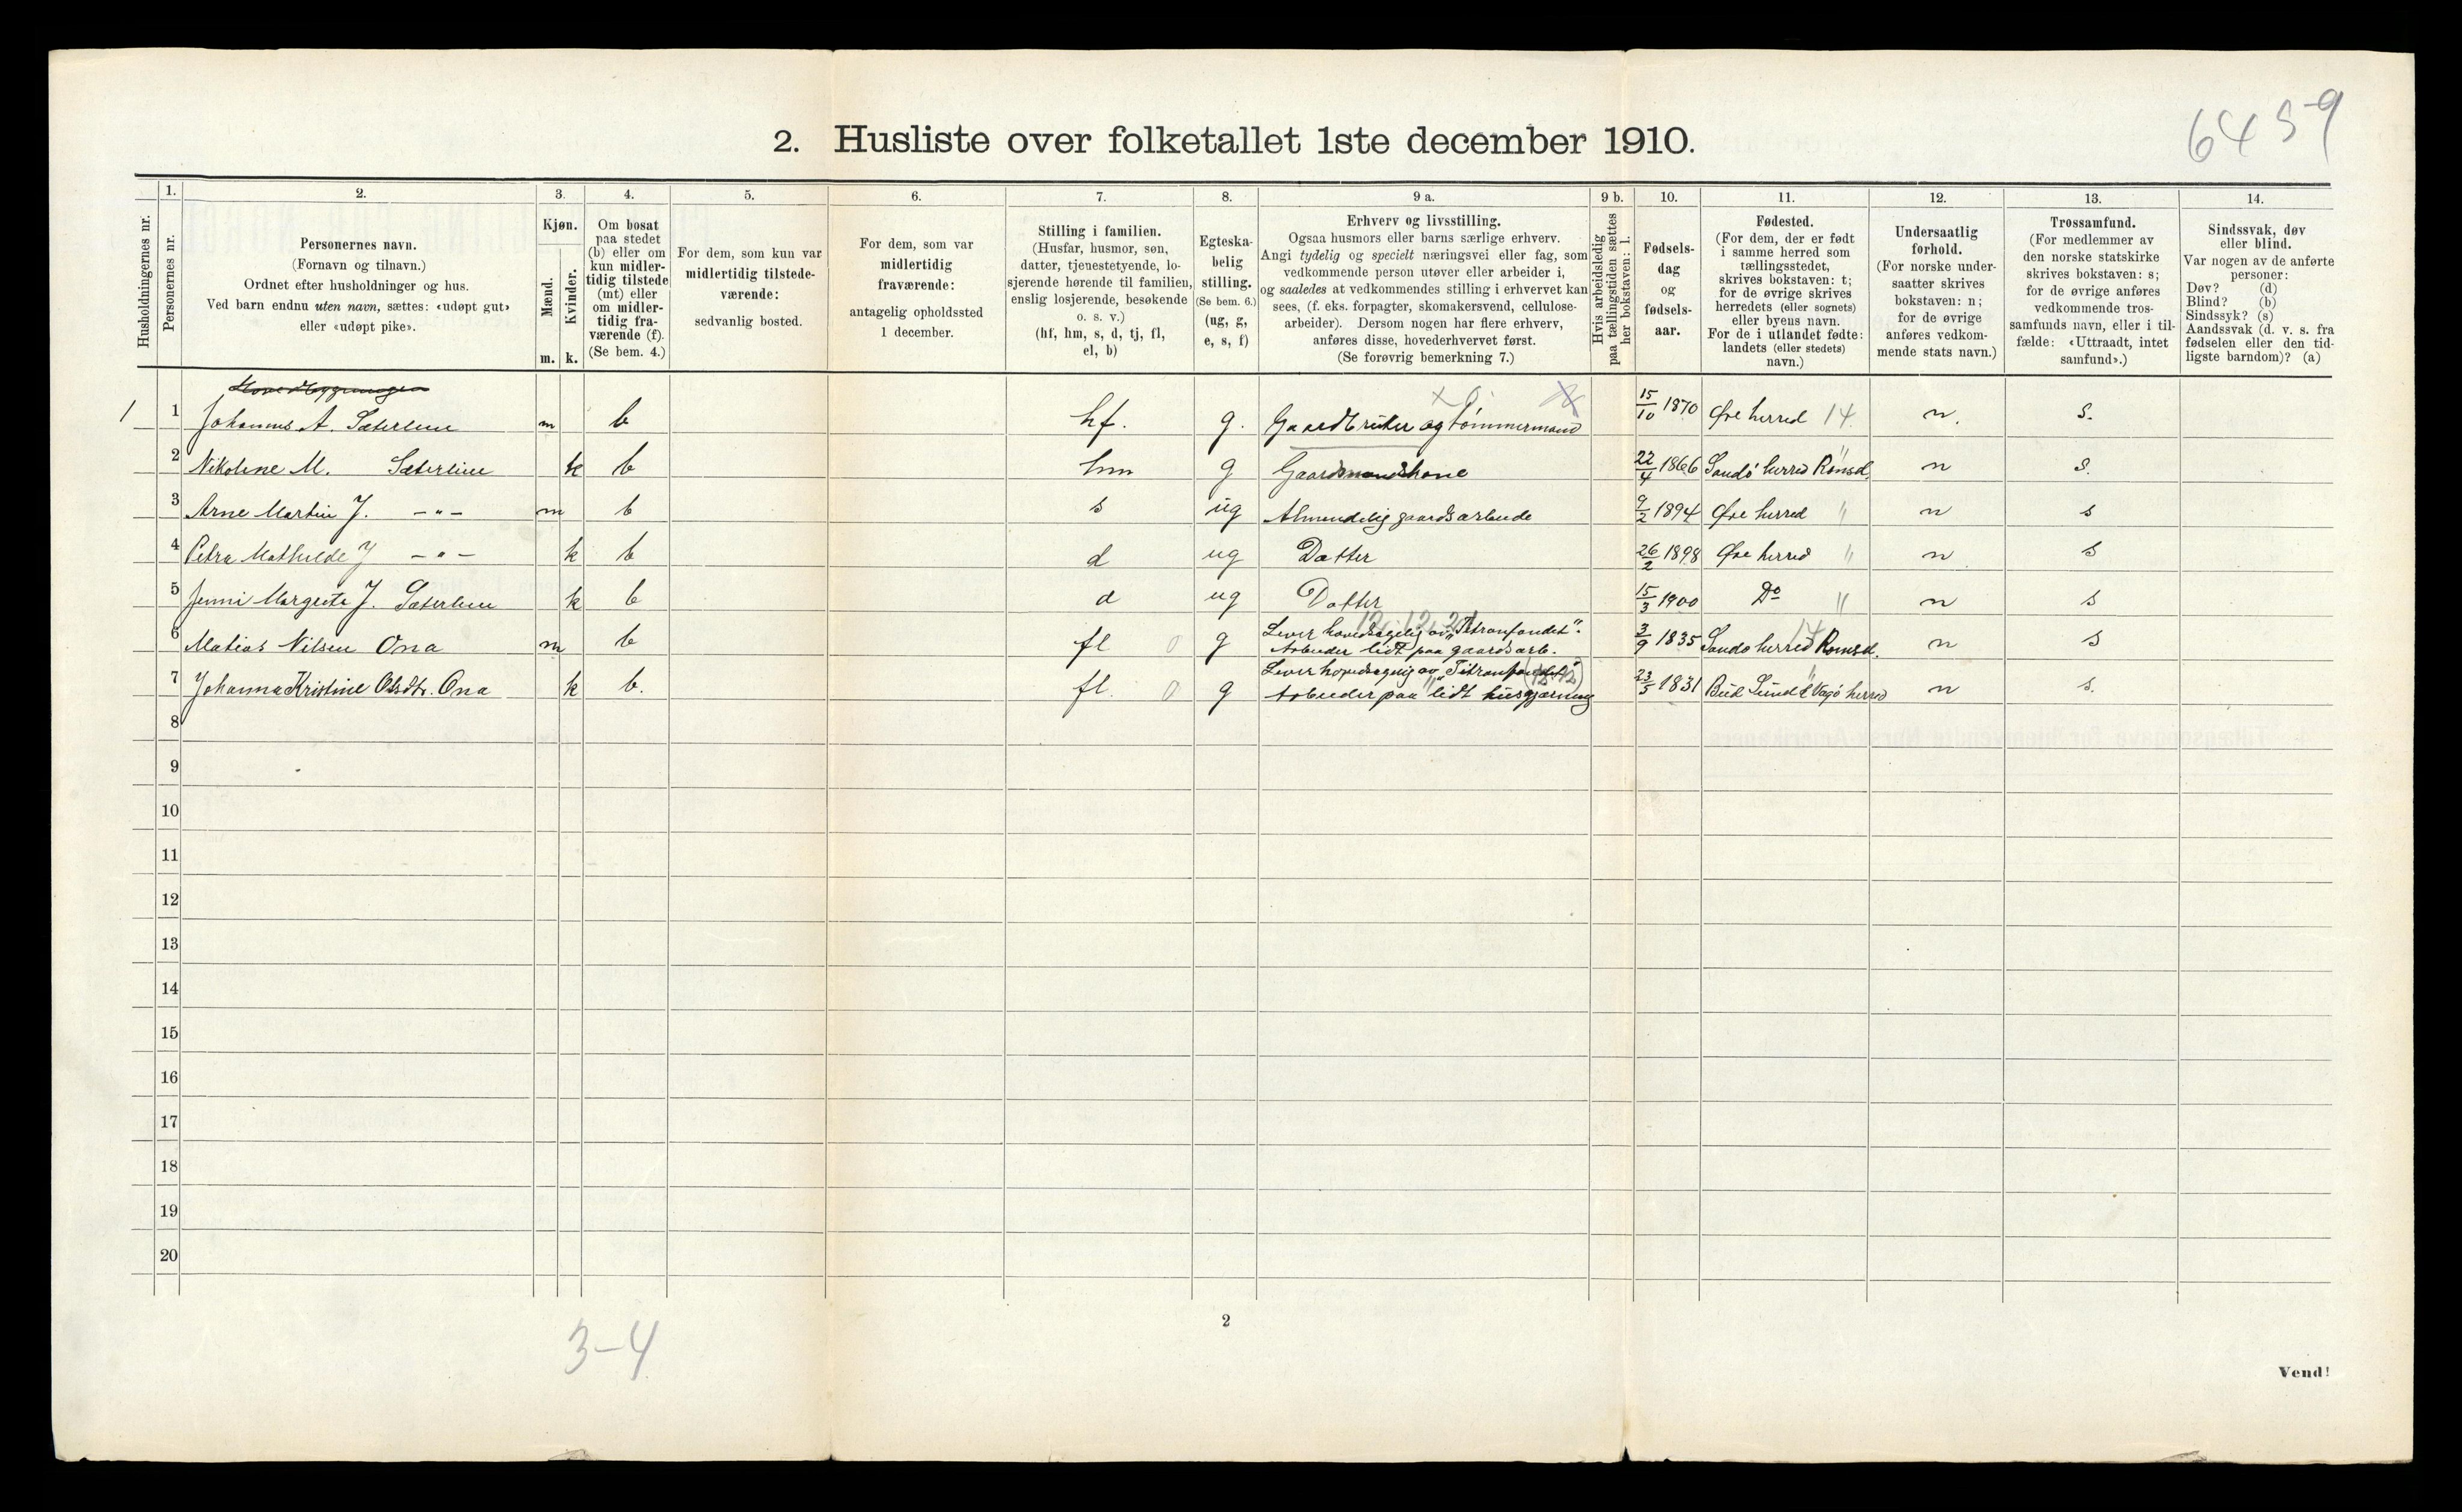 6459
2. Husliste over folketallet 1ste december 1910.
Husholdningernes nr.
1.
Personernes nr.
2.
Personernes navn.
(Fornavn og tilnavn.)
Ordnet efter husholdninger og hus.
Ved barn endnu uten navn, sættes: «udøpt gut»
eller «udøpt pike».
3.
Kjøn.
Mænd.
Kvinder.
m. k.
4.
Om bosat
paa stedet
(b) eller om
kun midler-
tidig tilstede
(mt) eller
om midler-
tidig fra-
værende (f).
(Se bem. 4.)
5.
For dem, som kun var
midlertidig tilstede-
værende:
sedvanlig bosted.
6.
For dem, som var
midlertidig
fraværende:
antagelig opholdssted
1 december.
7.
Stilling i familien.
(Husfar, husmor, søn,
datter, tjenestetyende, lo-
sjerende hørende til familien,
enslig losjerende, besøkende
o. s. v.)
(hf, hm, s, d, tj, fl,
el, b)
8.
Egteska-
belig
stilling.
(Se bem. 6.)
(ug, g,
e, s, f)
9 a.
Erhverv og livsstilling.
Ogsaa husmors eller barns særlige erhverv.
Angi tydelig og specielt næringsvei eller fag, som
vedkommende person utøver eller arbeider i,
og saaledes at vedkommendes stilling i erhvervet kan
sees, (f. eks. forpagter, skomakersvend, cellulose-
arbeider). Dersom nogen har flere erhverv,
anføres disse, hovederhvervet først.
(Se forøvrig bemerkning 7.)
9 b.
Hvis arbeidsledig
paa tællingstiden sættes
her bokstaven: l.
10.
Fødsels-
dag
og
fødsels-
aar.
11.
Fødested.
(For dem, der er født
i samme herred som
tællingsstedet,
skrives bokstaven: t;
for de øvrige skrives
herredets (eller sognets)
eller byens navn.
For de i utlandet fødte:
landets (eller stedets)
navn.)
12.
Undersaatlig
forhold.
(For norske under-
saatter skrives
bokstaven: n;
for de øvrige
anføres vedkom-
mende stats navn.)
13.
Trossamfund.
(For medlemmer av
den norske statskirke
skrives bokstaven: s;
for de øvrige anføres
vedkommende tros-
samfunds navn, eller i til-
fælde: «Uttraadt, intet
samfund».)
14.
Sindssvak, døv
eller blind.
Var nogen av de anførte
personer:
Døv? (d)
Blind? (b)
Sindssyk? (s)
Aandssvak (d. v. s. fra
fødselen eller den tid-
ligste barndom)? (a)
Hovedbygningen
1 1 Johannes A. Sæterlien m b hf. g. Gaardbruker og tømmermand 15/10 1870 Øre herred 14 n. s.
2 Nikoline M. Sæterlien k b hm g Gaardmandskone 22/4 1866 Sandø herred Romsd. " n s.
3 Arne Martin J. – " – m b s ug Almindelig gaardsarbeide 9/2 1894 Øre herred " n s
4 Petra Mathilde J – " – k b d ug Datter 26/2 1898 Øre herred " n s
5 Jenni Margrete J. Sæterlien k b d ug Datter 15/3 1900 Do " n s
6 Matias Nilsen Ona m b fl 0 g Lever hovedsagelig av "Titranfondet". Arbeider lidt paa gaardsarb. 3/9 1835 Sandø herred Romsd. 14 n s
7 Johanna Kristine Olsdtr. Ona k b. fl. 0 g Lever hovedsagelig av "Titranfondet" Arbeider paa lidt husgjerning 23/5 1831 Bud Sund & Vagö herred n s.
8
9
10
11
12
13
14
15
16
17
18
19
20
2
3-4
Vend!